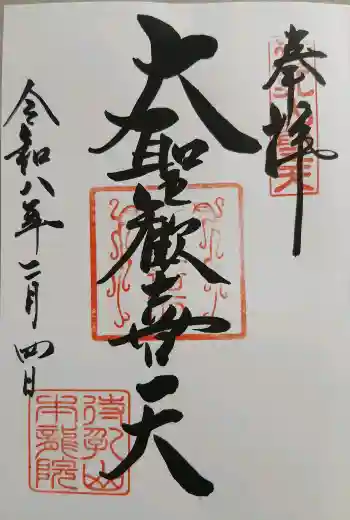 奉拝
大聖歓喜天
令和八年二月四日
待乳山
本龍院